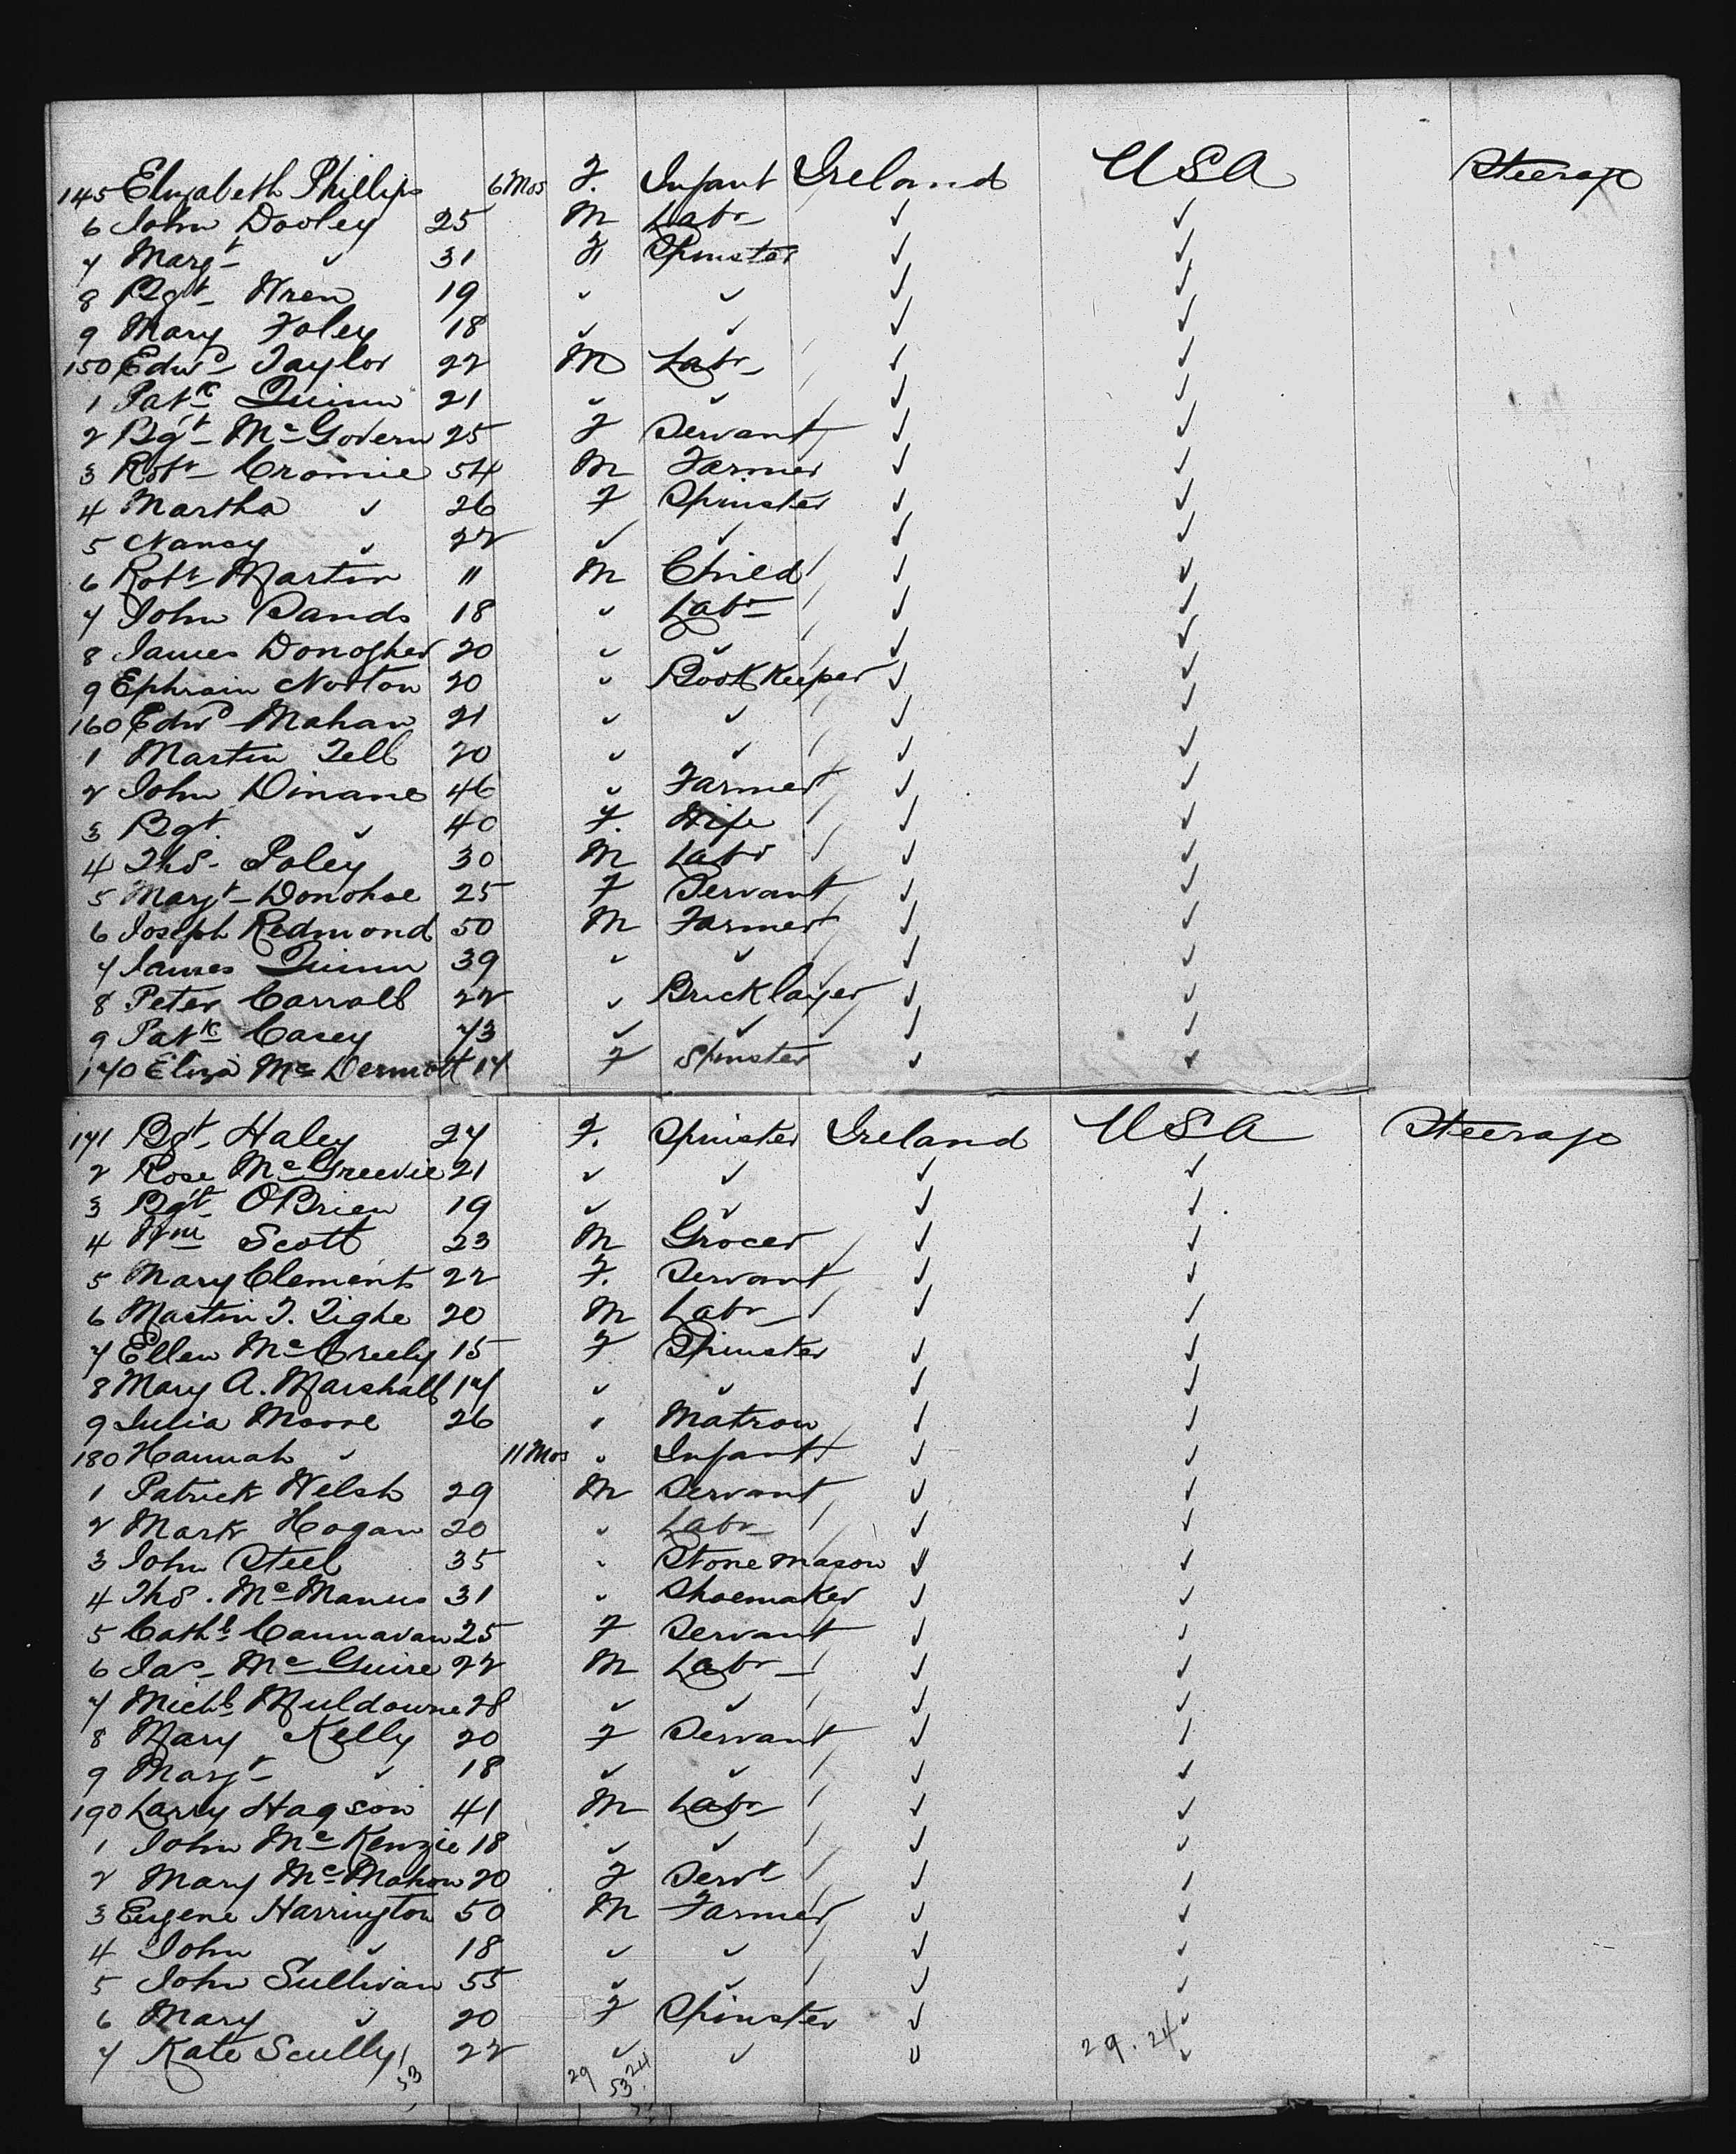 145 Elizabeth Phillips 6 Mos F. Infant Ireland USA Steerage
6 John Dooley 25 M Labr ✓ ✓
7 Margt ✓ 31 F Spinster ✓ ✓
8 Bgt Wren 19 ✓ ✓ ✓ ✓
9 Mary Foley 18 ✓ ✓ ✓ ✓
150 Edwd Taylor 22 M Labr ✓ ✓
1 Patk Quinn 21 ✓ ✓ ✓ ✓
2 Bgt McGovern 25 F Servant ✓ ✓
3 Robt Cromie 54 M Farmer ✓ ✓
4 Martha ✓ 26 F Spinster ✓ ✓
5 Nancy ✓ 22 ✓ ✓ ✓ ✓
6 Robt Martin 11 M Child ✓ ✓
7 John Sands 18 ✓ Labr ✓ ✓
8 James Donogher 20 ✓ ✓ ✓ ✓
9 Ephraim Norton 20 ✓ Book Keeper ✓ ✓
160 Edwd Mahan 21 ✓ ✓ ✓ ✓
1 Martin Tell 20 ✓ ✓ ✓ ✓
2 John Dinane 46 ✓ Farmer ✓ ✓
3 Bgt. ✓ 40 F. Wife ✓ ✓
4 Ths. Foley 30 M Labr ✓ ✓
5 Margt Donohoe 25 F Servant ✓ ✓
6 Joseph Redmond 50 M Farmer ✓ ✓
7 James Quinn 39 ✓ ✓ ✓ ✓
8 Peter Carroll 22 ✓ Bricklayer ✓ ✓
9 Patk Casey 73 ✓ ✓ ✓ ✓
170 Eliza McDermott 17 F Spinster ✓ ✓
171 Bgt Haley 27 F. Spinster Ireland USA Steerage
2 Rose McGreevie 21 ✓ ✓ ✓ ✓
3 Bgt OBrien 19 ✓ ✓ ✓ ✓
4 Wm Scott 23 M Grocer ✓ ✓
5 Mary Clements 22 F. Servant ✓ ✓
6 Martin T. Tighe 20 M Labr ✓ ✓
7 Ellen McCreely 15 F Spinster ✓ ✓
8 Mary A. Marshall 17 ✓ ✓ ✓ ✓
9 Julia Moore 26 ✓ Matron ✓ ✓
180 Hannah ✓ 11 Mos ✓ Infant ✓ ✓
1 Patrick Welsh 29 M Servant ✓ ✓
2 Mark Hogan 20 ✓ Labr ✓ ✓
3 John Steel 35 ✓ Stone Mason ✓ ✓
4 Ths. McManus 31 ✓ Shoemaker ✓ ✓
5 Cathe Cannavan 25 F Servant ✓ ✓
6 Jas McGuire 22 M Labr ✓ ✓
7 Michl Muldowne 28 ✓ ✓ ✓ ✓
8 Mary Kelly 20 F Servant ✓ ✓
9 Margt ✓ 18 ✓ ✓ ✓ ✓
190 Larry Hagson 41 M Labr ✓ ✓
1 John McKenzie 18 ✓ ✓ ✓ ✓
2 Mary McMahon 20 F Servt ✓ ✓
3 Eugene Harrington 50 M Farmer ✓ ✓
4 John ✓ 18 ✓ ✓ ✓ ✓
5 John Sullivan 55 ✓ ✓ ✓ ✓
6 Mary ✓ 20 F Spinster ✓ ✓
7 Kate Scully 22 ✓ ✓ ✓ ✓
29.24
53 29 24
53